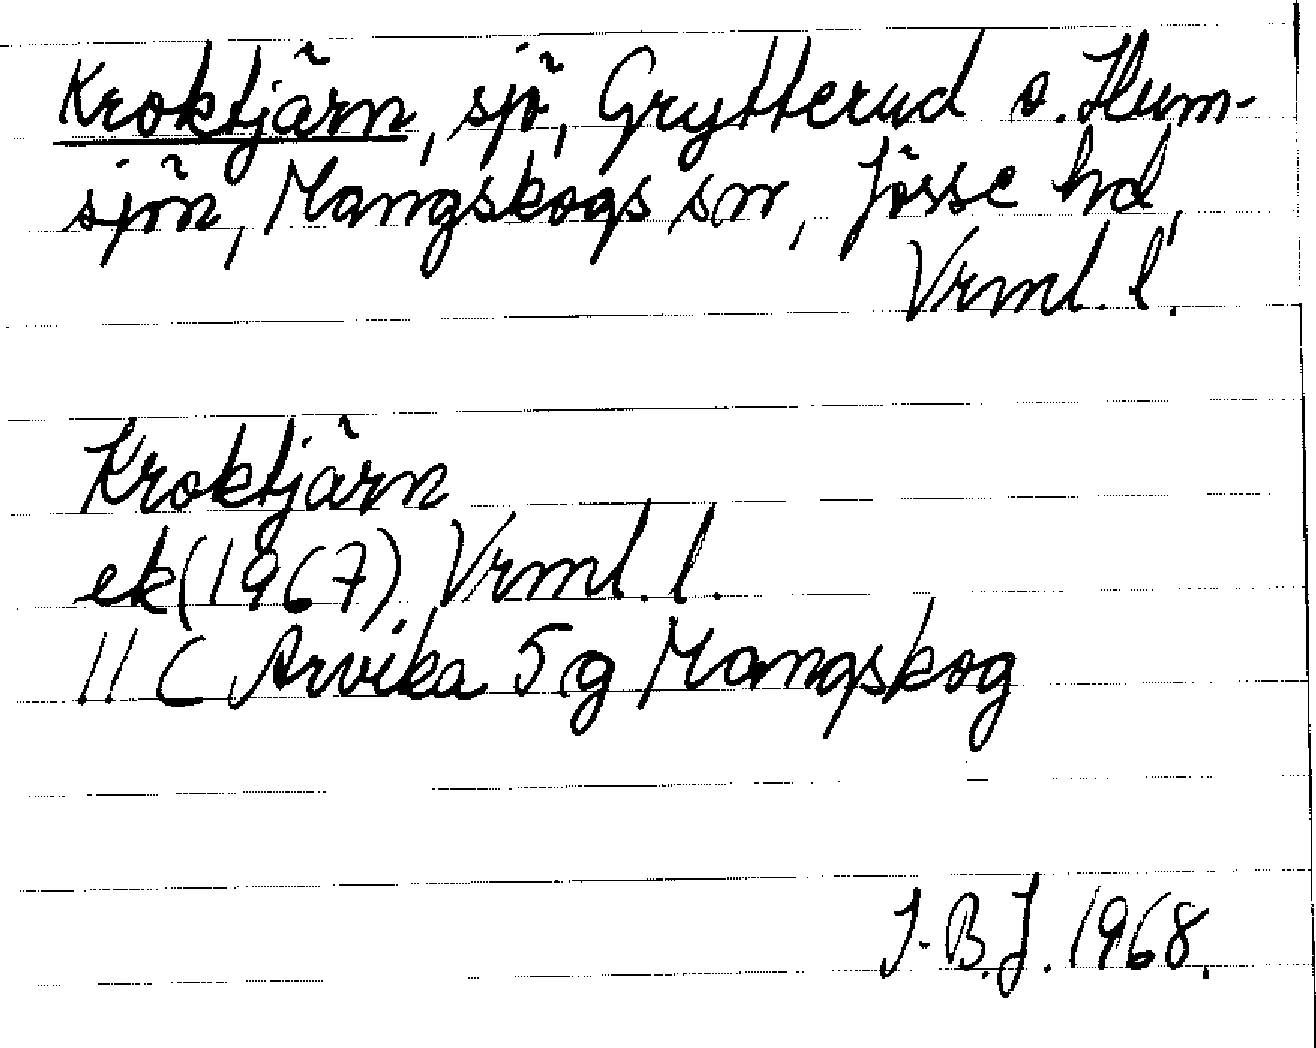 Kroktjärn, sjö, Grytterud o. Hum-
sjön, Mangskogs sn, Jösse hd,
Vrml. l.
Kroktjärn
ek (1967) Vrml. l.
11 C Arvika 5 g Mangskog
I-B.J. 1968.